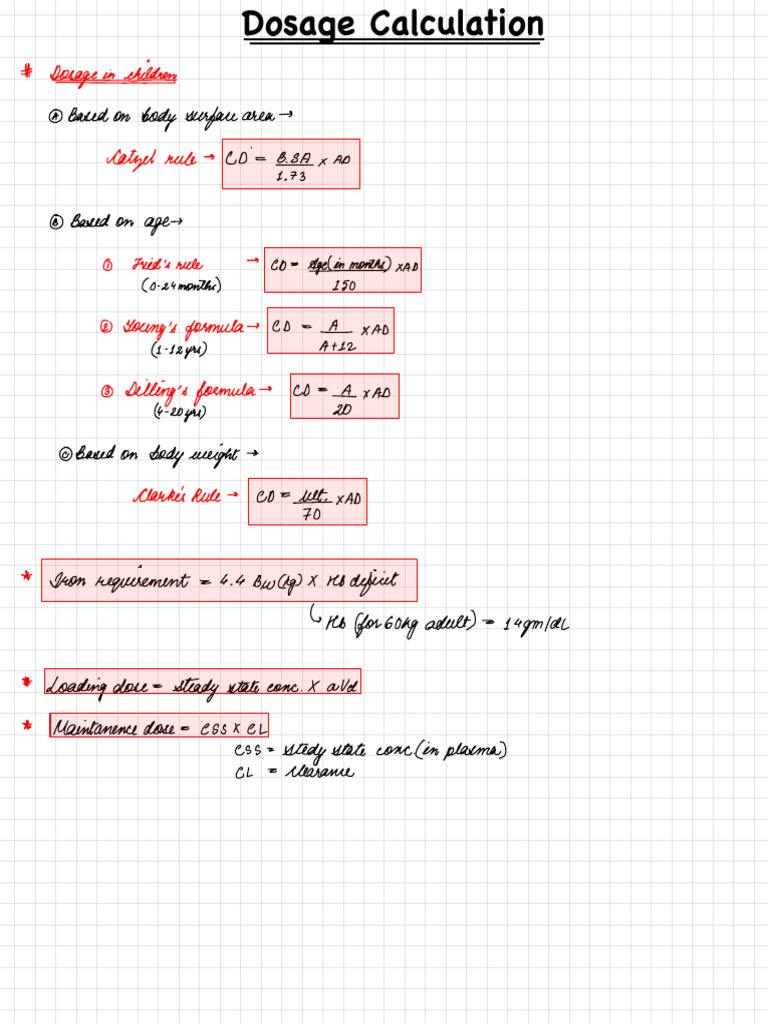 Dosage Calculation
# Dosage in children
Ⓐ Based on body surface area →
Catzel rule → CD = B.SA / 1.73 x AD
Ⓑ Based on age →
① Fried's rule → CD = Age (in months) / 150 x AD
(0-24 months)
② Young's formula → CD = A / A+12 x AD
(1-12 yrs)
③ Dilling's formula → CD = A / 20 x AD
(4-20 yrs)
Ⓒ Based on body weight →
Clarke's Rule → CD = wt. / 70 x AD
* Iron requirement = 4.4 BW (kg) X Hb deficit
↳ Hb (for 60kg adult) = 14gm/dL
* Loading dose = steady state conc. X aVd
* Maintanence dose = CSS X CL
CSS = stedy state conc (in plasma)
CL = clearance